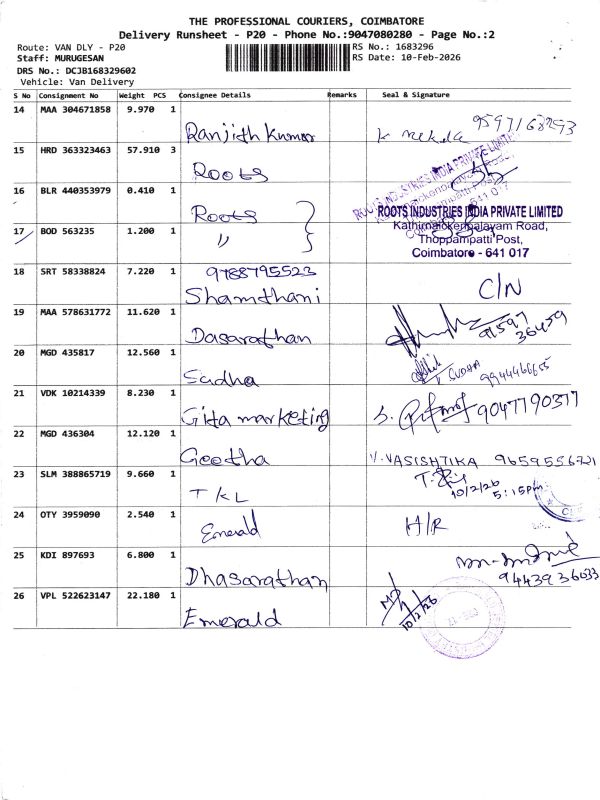 THE PROFESSIONAL COURIERS, COIMBATORE
Delivery Runsheet - P20 - Phone No.:9047080280 - Page No.:2
Route: VAN DLY - P20
RS No.: 1683296
Staff: MURUGESAN
RS Date: 10-Feb-2026
DRS No.: DCJB168329602
Vehicle: Van Delivery
S No Consignment No Weight PCS Consignee Details Remarks Seal & Signature
14 MAA 304671858 9.970 1
Ranjith Kumar
15 HRD 363323463 57.910 3
Roots
16 BLR 440353979 0.410 1
Roots
ROOTS INDUSTRIES INDIA PRIVATE LIMITED
Kathirnaickenpalayam Road,
Thoppampatti Post,
Coimbatore - 641 017
17 BOD 563235 1.200 1
"
18 SRT 58338824 7.220 1
9788795523
Shamthani
C/N
19 MAA 578631772 11.620 1
Dasarathan
91597 36459
20 MGD 435817 12.560 1
Sudha
SUDHA
9944466655
21 VDK 10214339 8.230 1
Gita marketing
9047790377
22 MGD 436304 12.120 1
Geetha
V. VASISHTIKA 9659556721
23 SLM 388865719 9.660 1
TKL
10/2/26
5:15pm
24 OTY 3959090 2.540 1
Emerald
H/R
25 KDI 897693 6.800 1
Dhasarathan
26 VPL 522623147 22.180 1
Emerald
10/2/26